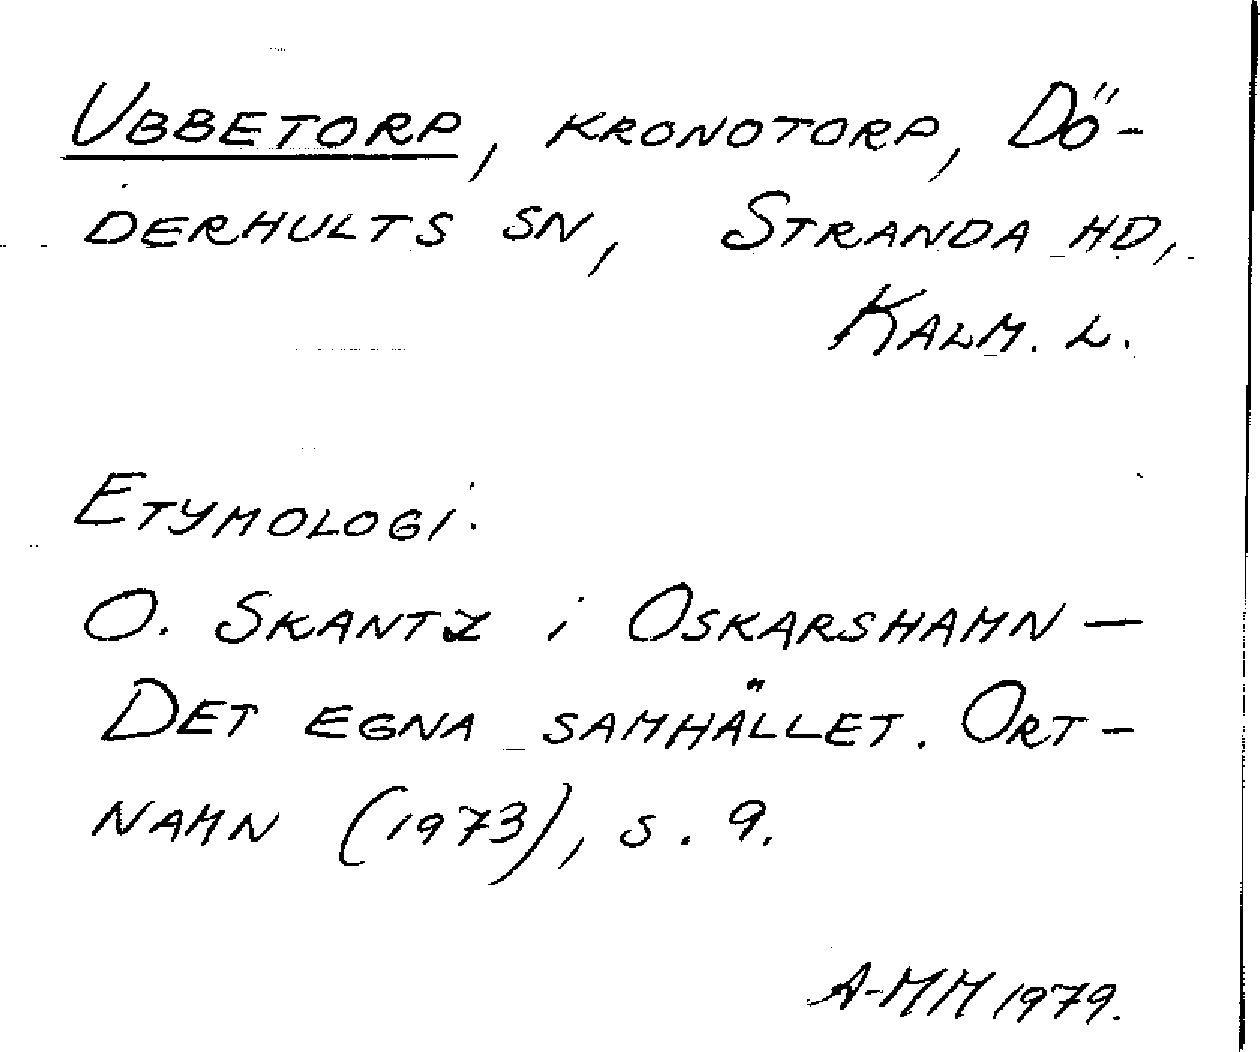 Ubbetorp, kronotorp, Dö-
derhults sn, Stranda hd,
Kalm. l.
Etymologi:
O. Skantz i Oskarshamn —
Det egna samhället. Ort-
namn (1973), s. 9.
A-MM 1979.